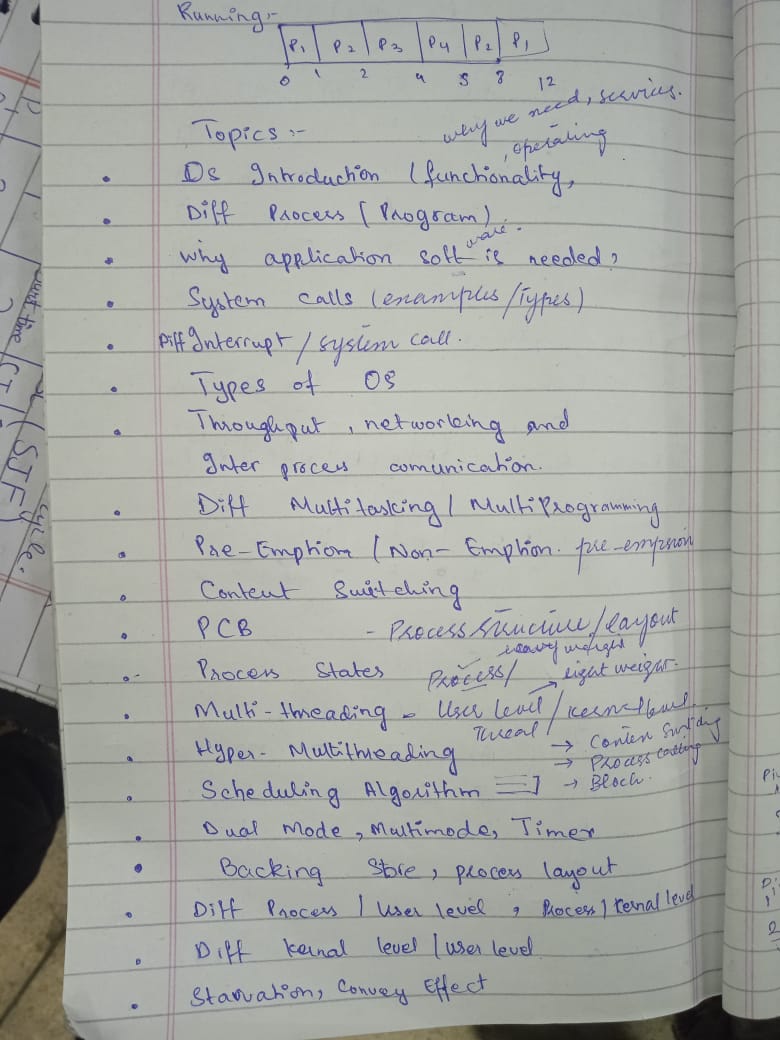 Running:-
P1 P2 P3 P4 P2 P1
0 1 2 4 5 8 12
Topics :-
why we need, services.
, operating
• OS Introduction (functionality,
• Diff Process (Program)
• why application software is needed?
• System calls (examples/Types)
• Diff Interrupt / system call.
• Types of OS
• Throughput, networking and
Inter process comunication.
• Diff Multitasking / MultiProgramming
• Pre-Emption / Non-Emption. pre-empsion
• Context Switching
• PCB - Process structure/layout
heavy weight
• Process States Process/ light weight.
• Multi-threading - User level / Kernel level
Thread
• Hyper-Multithreading
• Scheduling Algorithm → Block.
• Dual Mode, Multimode, Timer
• Backing Store, process layout
• Diff Process / User level, Process / Kernal level
• Diff kernal level / user level
• Starvation, Convey Effect
(SJF)
cycle.